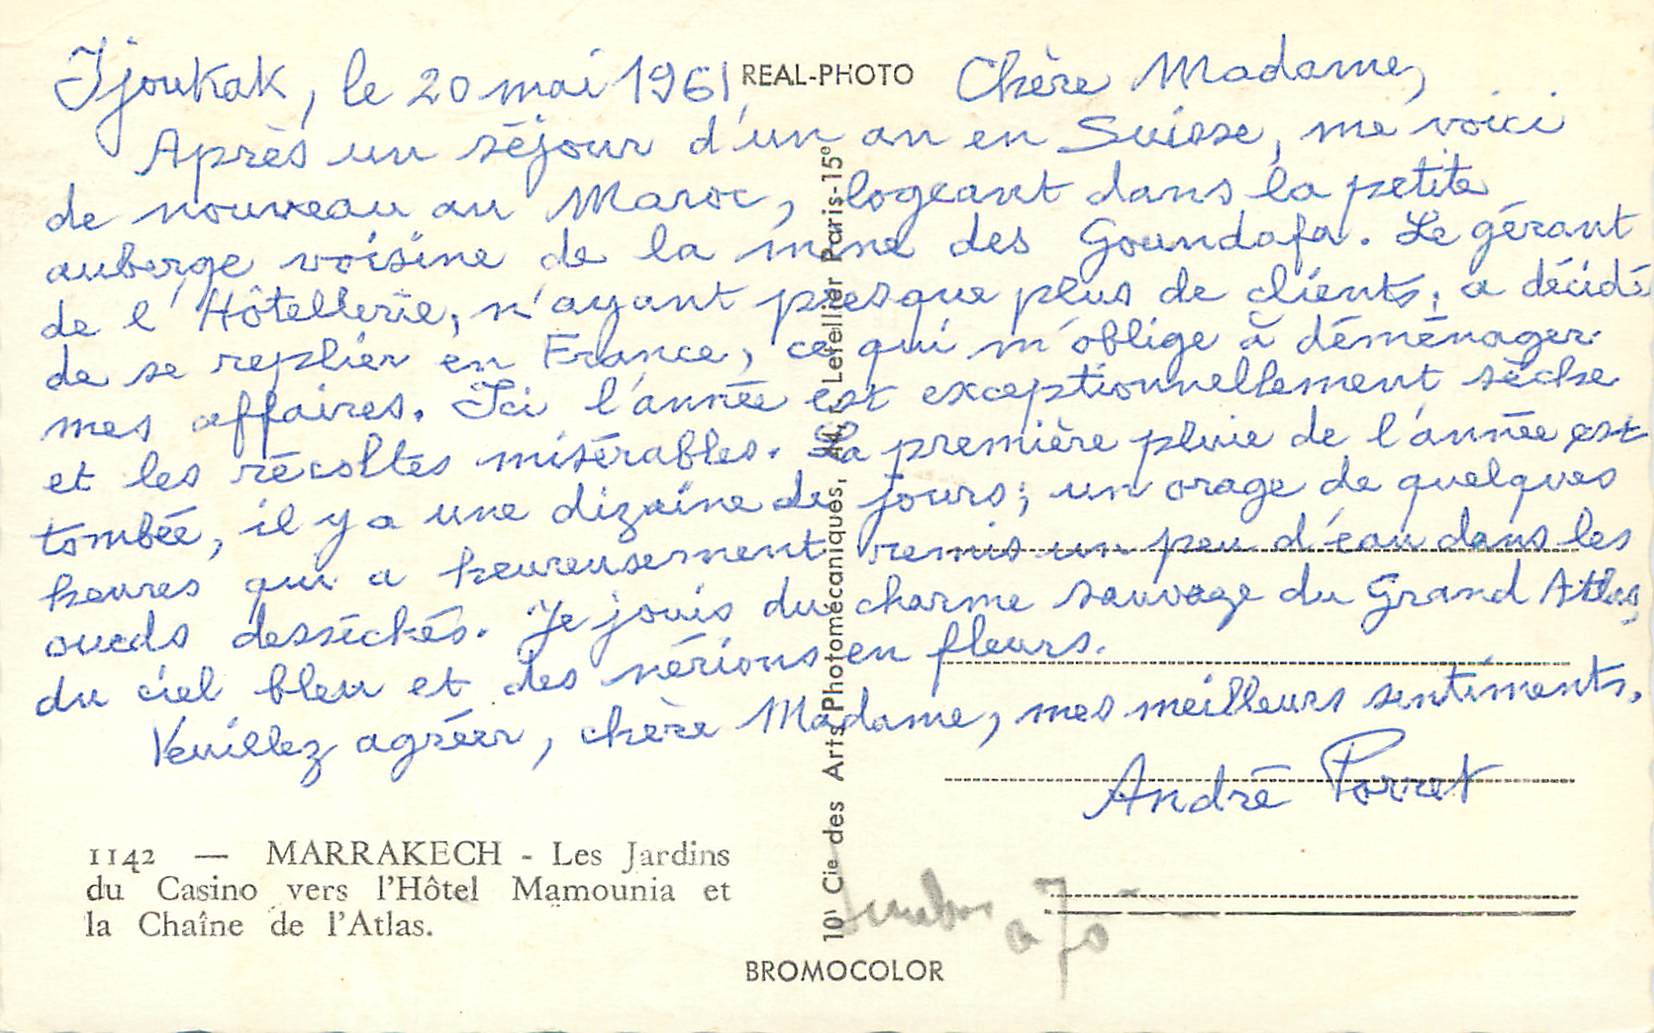 Ijoukak, le 20 mai 1961 REAL-PHOTO Chère Madame,
Après un séjour d'un an en Suisse, me voici
de nouveau au Maroc, logeant dans la petite
auberge voisine de la mine des Goundafa. Le gérant
de l'Hôtellerie, n'ayant presque plus de clients, a décidé
de se replier en France, ce qui m'oblige à déménager
mes affaires. Ici l'année est exceptionnellement sèche
et les récoltes misérables. La première pluie de l'année est
tombée, il y a une dizaine de jours; un orage de quelques
heures qui a heureusement remis un peu d'eau dans les
oueds desséchés. Je jouis du charme sauvage du Grand Atlas,
du ciel bleu et des nérions en fleurs.
Veuillez agréer, chère Madame, mes meilleurs sentiments.
André Porret
1142 — MARRAKECH - Les Jardins
du Casino vers l'Hôtel Mamounia et
la Chaîne de l'Atlas.
Cie des Arts Photomécaniques, 44, r. Letellier Paris-15e
a 70
BROMOCOLOR